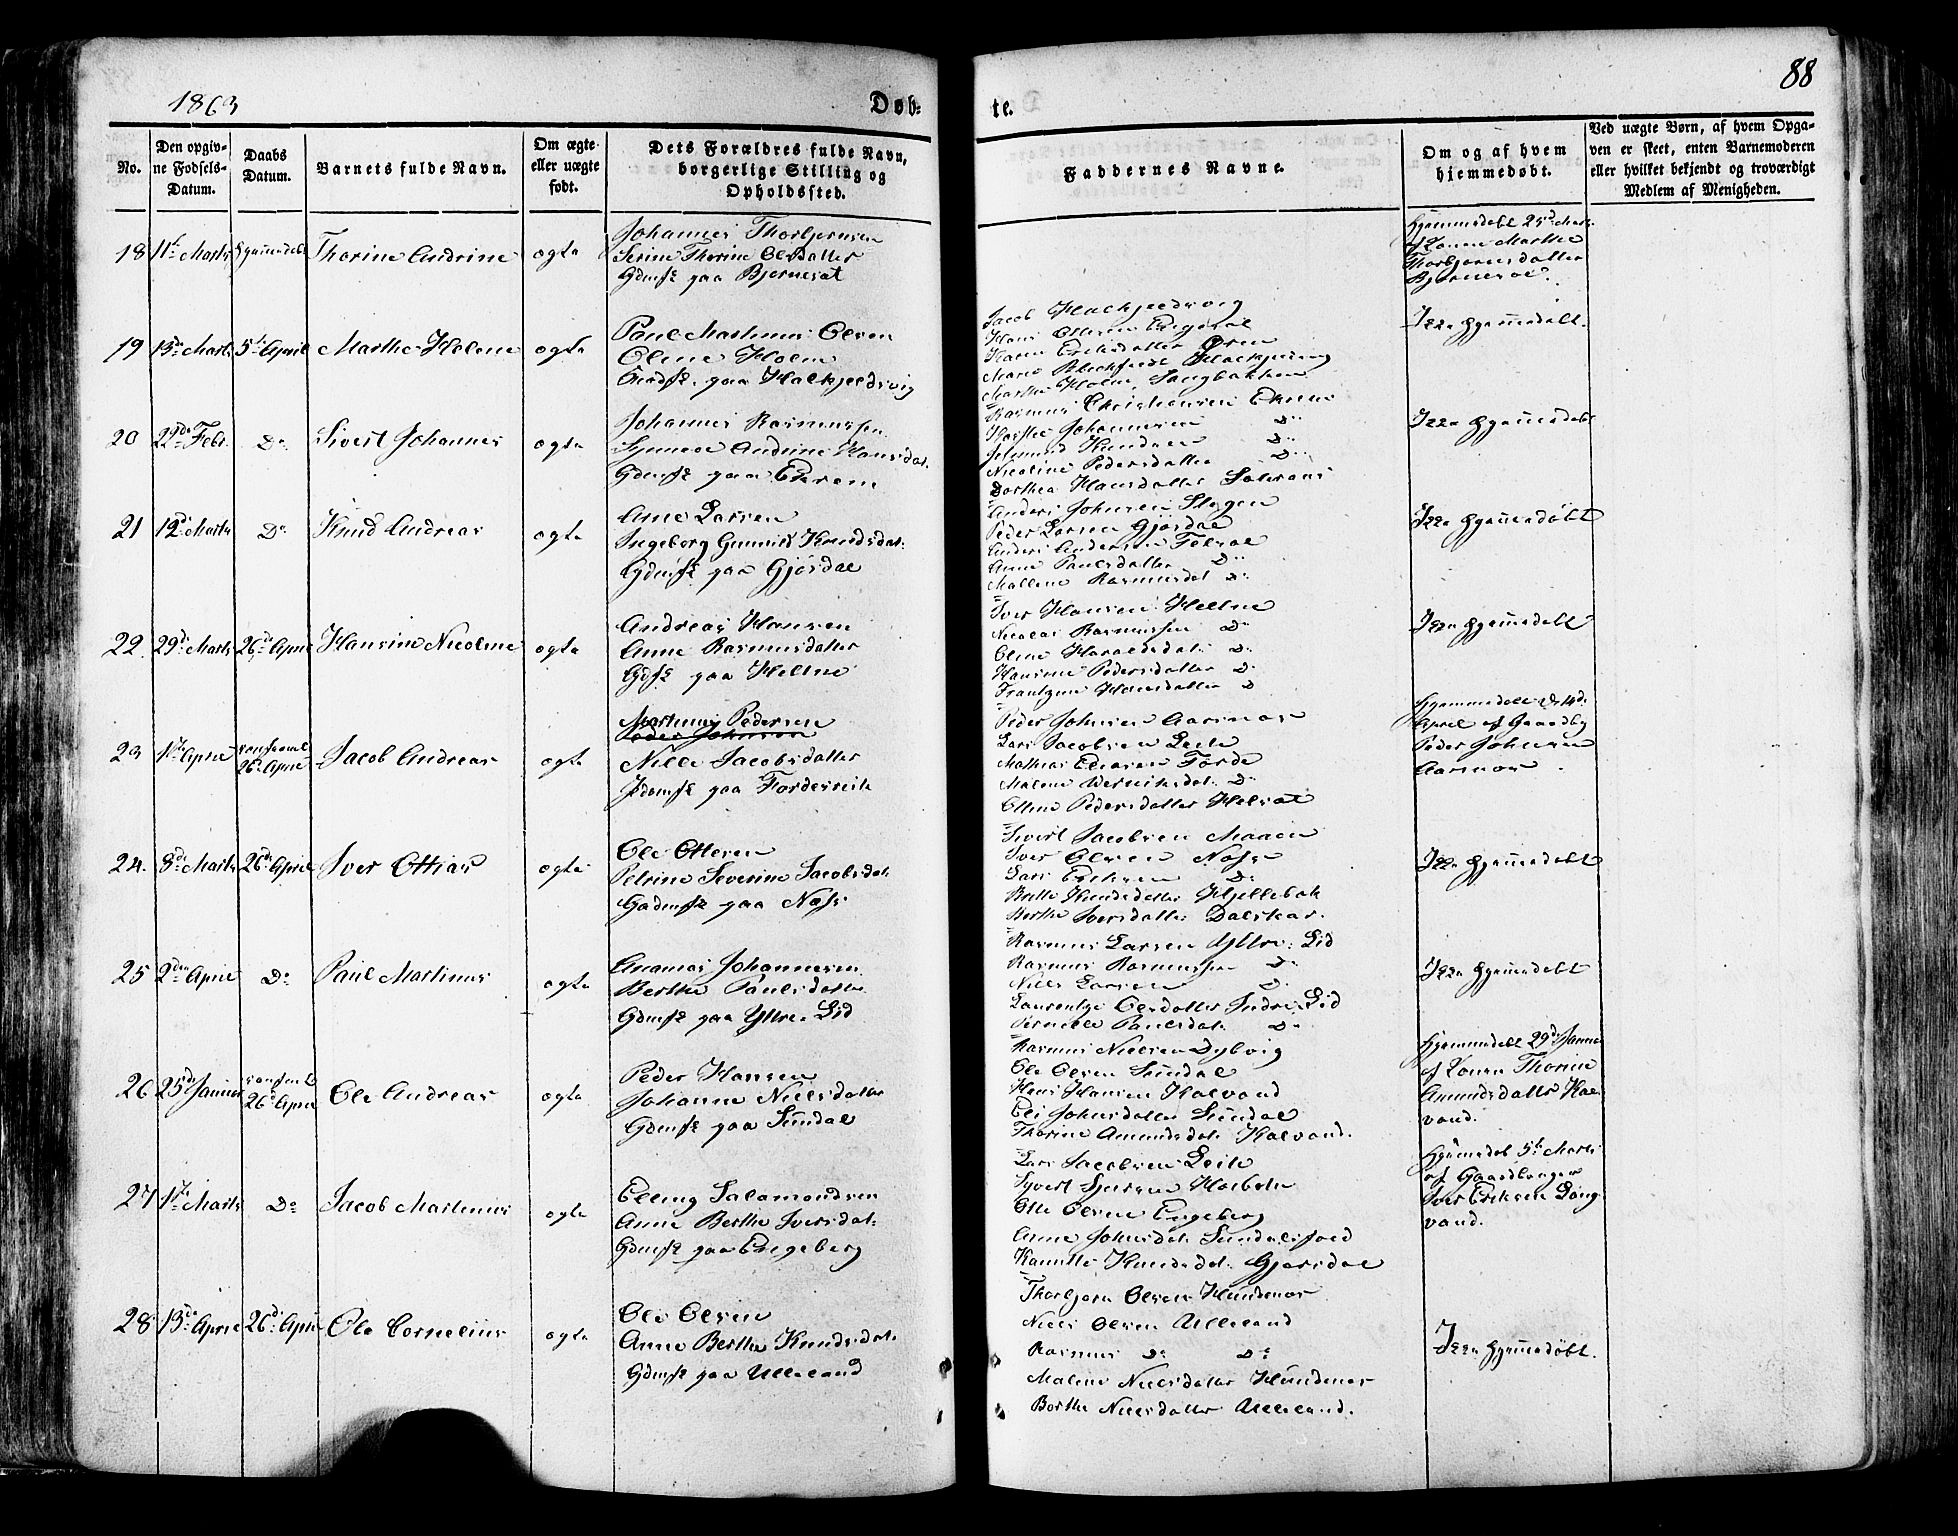 1863
Døb-
te.
88
No.
Den opgiv-
ne Fødsels-
Datum.
Daabs
Datum.
Barnets fulde Navn.
Om ægte
eller uægte
født.
Dets Forældres fulde Navn,
borgerlige Stilling og
Opholdssted.
Faddernes Navne.
Om og af hvem
hjemmedøbt.
Ved uægte Børn, af hvem Opga-
ven er skeet, enten Barnemoderen
eller hvilket bekjendt og troværdigt
Medlem af Menigheden.
18
11te Marts
Hjemmedøbt
Thorine Andrine
ægte
Johannes Thorbjørnsen
Serine Thorine Olsdatter
Gdmfk paa Bjørneset
Hjemmedøbt 25de Marts
af Konen Marthe
Thorbjørnsdatter
19
13de Marts
5te April
Marthe Helene
ægte
Paul Martinus Olsen
Oline Holm
paa Halkjeldsvig
Jacob Halkjeldsvig
Hans Ottesen Engdal
Karen Eriksdatter
Marthe Holm
Ikke hjemmedøbt.
20
22de Febr.
Do
Sivert Johannes
ægte
Johannes Rasmussen
Synnøe Andrine Hansdat.
Gdmfk paa
Rasmus Christiansen
Johannesen Do
Knudsen Do
Nicoline Pedersdatter Do
Dorthea Hansdatter
Ikke hjemmedøbt
21
12te Marts
Do
Knud Andreas
ægte
Arne Larsen
Ingeborg Gunnild Knudsdat.
Gdmfk paa Gjørdal
Anders Johnsen
Peder Larsen Gjørdal
Anders Andersen
Anne Paulsdatter Do
Mallene Rasmusdat. Do
Ikke hjemmedøbt
22.
29de Marts
26de April
Hansine Nicoline
ægte
Andreas Hansen
Anne Rasmusdatter
Gdfk paa Heltne
Iver Hansen Heltne
Nicolai Rasmussen Do
Oline Haraldsdat. Do
Hansine Pedersdatter Do
Hansdatter Do
Ikke hjemmedøbt
23
1te April
26de April
Jacob Andreas
ægte
Martinus Pedersen
Peder Johnsen
Nille Jacobsdatter
paa Førdesreit
Peder Johnsen Aarsnes
Lars Jacobsen
Mathias Eliasen Førde
Malene Do
Oline Pedersdatter
Hjemmedøbt D. 14de
April af Gaardbr.
Peder Johnsen
Aarsnes
24.
8de Marts
26de April
Iver Ottias
ægte
Ole Ottesen
Petrine Severine Jacobsdat.
Gdmfk paa Næss
Sivert Jacobsen
Iver Olsen Næss
Lars Eriksen Do
Brithe Knudsdatter Hjellebak
Berthe Iversdatter Dalskar.
Ikke hjemmedøbt
25
2den April
Do
Paul Martinus
ægte
Ananias Johannesen
Berthe Paulsdatter
Gdmfk paa Yttre-Lid
Rasmus Larsen Yttre-Lid
Rasmus Rasmussen Do
Niels Larsen Do
Laurentze Olsdatter Indre-Lid
Pernille Paulsdat. Do
Ikke hjemmedøbt
26
25de Januar
26de April
Ole Andreas
ægte
Peder Hansen
Johanne Nielsdatter
Gdmfk paa Sundal
Rasmus Nielsen Dybvig
Ole Olsen Sundal
Hans Hansen Kalvand
Eli Johnsdatter Sundal
Thorine Amundsdat. Kalvand.
Hjemmedøbt 29de Januar
af Konen Thorine
Amundsdatter Kal-
vand.
27
1te Marts
Do
Jacob Martinus
ægte
Elling Salamondsen
Anne Berthe Iversdat.
Gdmfk paa Engeberg
Lars Jacobsen
Ole Olsen Engeberg
Anne Johnsdat.
Knudsdat. Gjørsdal
Hjemmedøbt 5te Marts
af Gaardbrugen
Iver Eriksen Lang-
vand.
28
13de April
26de April
Ole Cornelius
ægte
Ole Olsen
Anne Berthe Knudsdat.
Gdmfk paa Ulleland
Thorbjørn Olsen Hundsnæs
Niels Olsen Ulleland
Rasmus Do Do
Malene Nielsdatter Hundsnæs
Berthe Nielsdatter Ulleland.
Ikke hjemmedøbt.